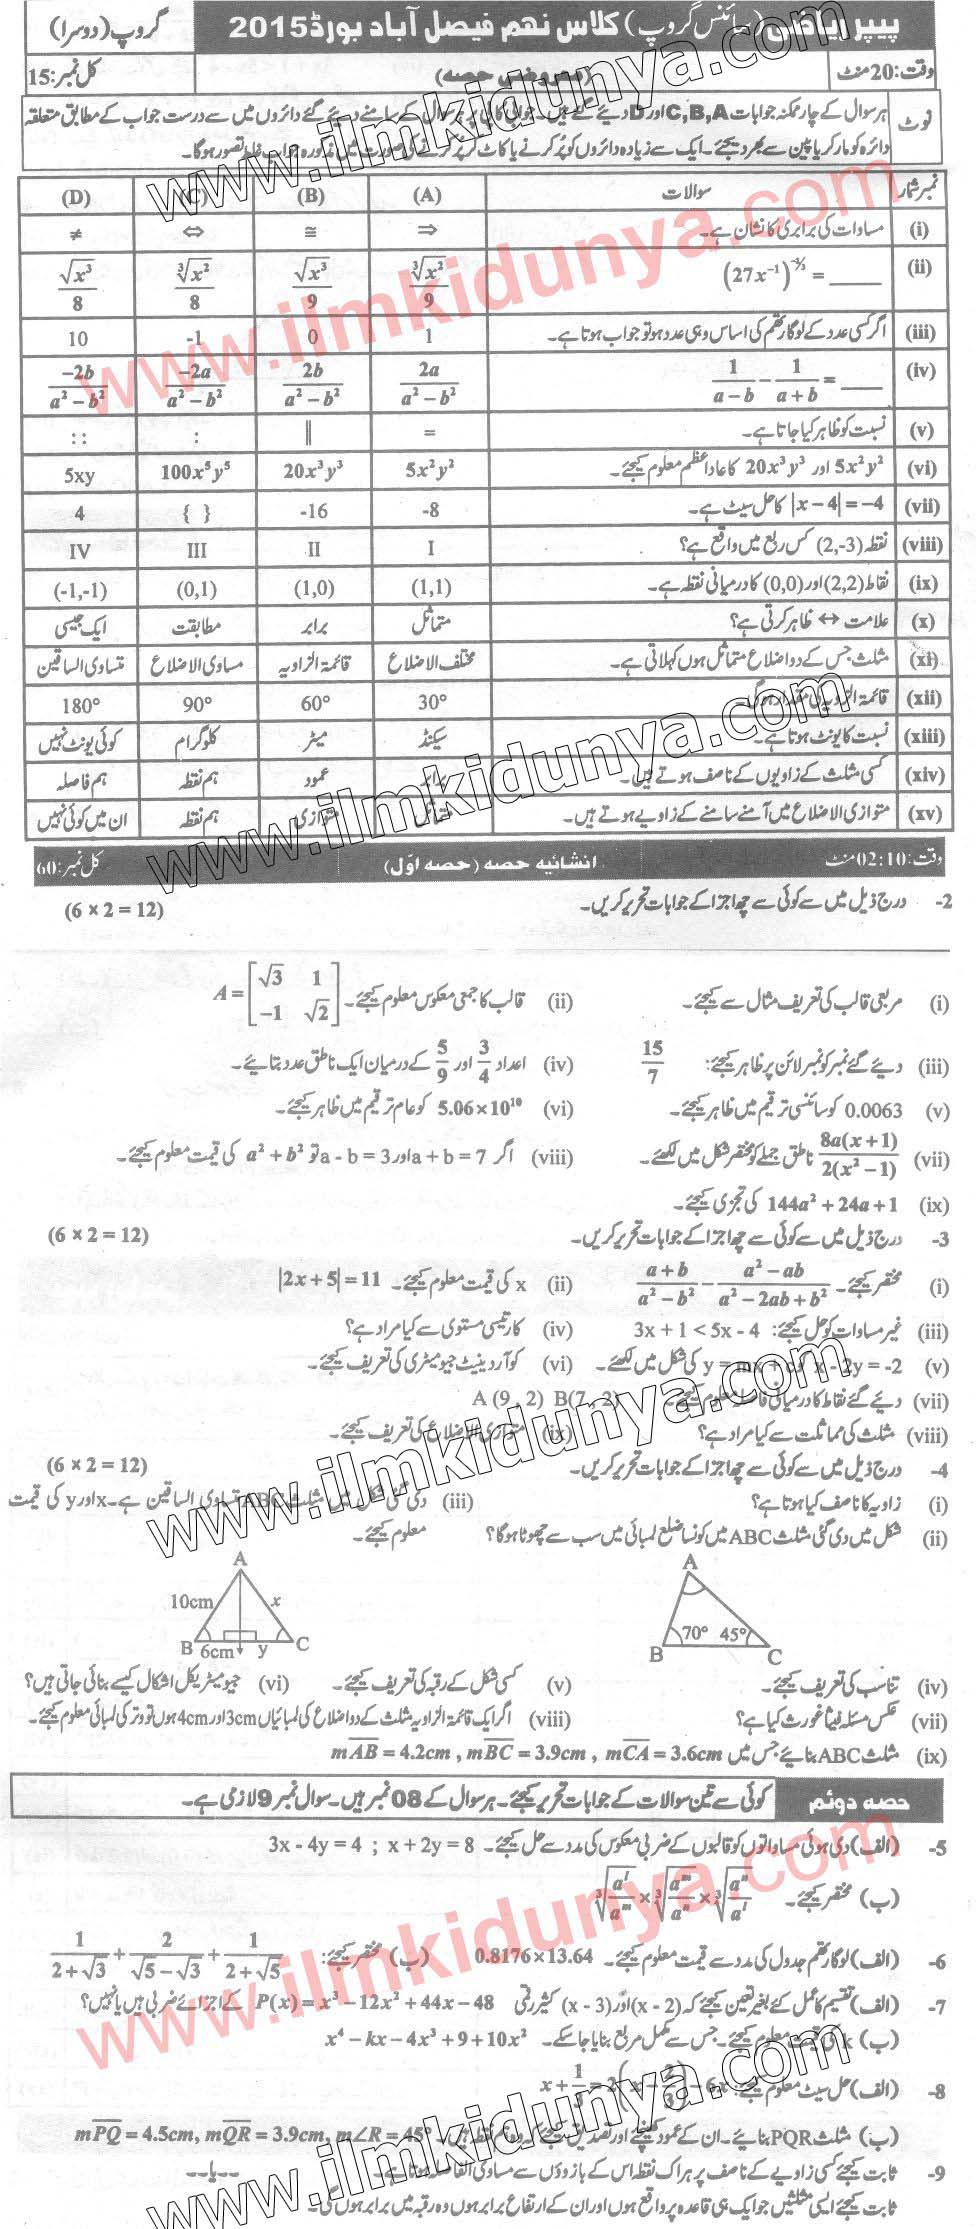 پیپر ریاضی (سائنس گروپ) کلاس نہم فیصل آباد بورڈ 2015 گروپ (دوسرا)
وقت: 20 منٹ (معروضی حصہ) کل نمبر: 15
نوٹ ہر سوال کے چار ممکنہ جوابات C,B,A اور D دیے گئے ہیں۔ جوابی کاپی پر ہر سوال کے سامنے دیے گئے دائروں میں سے درست جواب کے مطابق متعلقہ
دائرہ کو مارکر یا پین سے بھر دیجئے۔ ایک سے زیادہ دائروں کو پُر کرنے یا کاٹ کر پُر کرنے کی صورت میں مذکورہ جواب غلط تصور ہوگا۔
نمبر شمار سوالات (A) (B) (C) (D)
(i) مساوات کی برابری کا نشان ہے۔ ⇒ ≅ ⇔ ≠
(ii) (27x⁻¹)^(-2/3) = ____ ∛x²/9 √x³/9 ∛x²/8 √x³/8
(iii) اگر کسی عدد کے لوگارتھم کی اساس وہی عدد ہو تو جواب ہوتا ہے۔ 1 0 -1 10
(iv) 1/(a-b) - 1/(a+b) = ____ 2a/(a²-b²) 2b/(a²-b²) -2a/(a²-b²) -2b/(a²-b²)
(v) نسبت کو ظاہر کیا جاتا ہے۔ = ‖ : : :
(vi) 5x²y² اور 20x³y³ کا عاد اعظم معلوم کیجئے۔ 5x²y² 20x³y³ 100x⁵y⁵ 5xy
(vii) |x-4| = -4 کا حل سیٹ ہے۔ -8 -16 { } 4
(viii) نقطہ (2,-3) کس ربع میں واقع ہے؟ I II III IV
(ix) نقاط (2,2) اور (0,0) کا درمیانی نقطہ ہے۔ (1,1) (1,0) (0,1) (-1,-1)
(x) علامت ↔ ظاہر کرتی ہے؟ متماثل برابر مطابقت ایک جیسی
(xi) مثلث جس کے دو اضلاع متماثل ہوں کہلاتی ہے۔ مختلف الاضلاع قائمۃ الزاویہ مساوی الاضلاع متساوی الساقین
(xii) قائمۃ الزاویہ کی مقدار ہوگی۔ 30° 60° 90° 180°
(xiii) نسبت کا یونٹ ہوتا ہے۔ سیکنڈ میٹر کلوگرام کوئی یونٹ نہیں
(xiv) کسی مثلث کے زاویوں کے ناصف ہوتے ہیں۔ برابر عمود ہم نقطہ ہم فاصلہ
(xv) متوازی الاضلاع میں آمنے سامنے کے زاویے ہوتے ہیں۔ متماثل متوازی ہم نقطہ ان میں کوئی نہیں
وقت: 02:10 منٹ انشائیہ حصہ (حصہ اوّل) کل نمبر: 60
2- درج ذیل میں سے کوئی سے چھ اجزا کے جوابات تحریر کریں۔ (6 × 2 = 12)
(i) مربعی قالب کی تعریف مثال سے کیجئے۔ (ii) قالب کا جمعی معکوس معلوم کیجئے۔ A = [√3 1; -1 √2]
(iii) دیے گئے نمبر کو نمبر لائن پر ظاہر کیجئے: 15/7 (iv) اعداد 3/4 اور 5/9 کے درمیان ایک ناطق عدد بتایئے۔
(v) 0.0063 کو سائنسی ترقیم میں ظاہر کیجئے۔ (vi) 5.06×10¹⁰ کو عام ترقیم میں ظاہر کیجئے۔
(vii) 8a(x+1)/2(x²-1) ناطق جملے کو مختصر شکل میں لکھئے۔ (viii) اگر a + b = 7 اور a - b = 3 تو a² + b² کی قیمت معلوم کیجئے۔
(ix) 144a² + 24a + 1 کی تجزی کیجئے۔
3- درج ذیل میں سے کوئی سے چھ اجزا کے جوابات تحریر کریں۔ (6 × 2 = 12)
(i) مختصر کیجئے۔ (a+b)/(a²-b²) - (a²-ab)/(a²-2ab+b²) (ii) x کی قیمت معلوم کیجئے۔ |2x+5| = 11
(iii) غیر مساوات کو حل کیجئے: 3x + 1 < 5x - 4 (iv) کارتیسی مستوی سے کیا مراد ہے؟
(v) x - 2y = -2 کو y = mx + c کی شکل میں لکھئے۔ (vi) کوآرڈینیٹ جیومیٹری کی تعریف کیجئے۔
(vii) دیے گئے نقاط کا درمیانی فاصلہ معلوم کیجئے۔ A (9 , 2) B(7 , 2)
(viii) مثلث کی مماثلت سے کیا مراد ہے؟ (ix) متوازی الاضلاع کی تعریف کیجئے۔
4- درج ذیل میں سے کوئی سے چھ اجزا کے جوابات تحریر کریں۔ (6 × 2 = 12)
(i) زاویہ کا ناصف کیا ہوتا ہے؟ (iii) دی گئی شکل میں مثلث ABC متساوی الساقین ہے۔ x اور y کی قیمت
(ii) شکل میں دی گئی مثلث ABC میں کونسا ضلع لمبائی میں سب سے چھوٹا ہوگا؟ معلوم کیجئے۔
A B C 70° 45°
A B C 10cm x 6cm y
(iv) تناسب کی تعریف کیجئے۔ (v) کسی شکل کے رقبہ کی تعریف کیجئے۔ (vi) جیومیٹریکل اشکال کیسے بنائی جاتی ہیں؟
(vii) عکس مسئلہ فیثا غورث کیا ہے؟ (viii) اگر ایک قائمۃ الزاویہ مثلث کے دو اضلاع کی لمبائیاں 3cm اور 4cm ہوں تو وتر کی لمبائی معلوم کیجئے۔
(ix) مثلث ABC بنایئے جس میں mAB = 4.2cm , mBC = 3.9cm , mCA = 3.6cm
حصہ دوئم کوئی سے تین سوالات کے جوابات تحریر کیجئے۔ ہر سوال کے 08 نمبر ہیں۔ سوال نمبر 9 لازمی ہے۔
5- (الف) دی ہوئی مساواتوں کو قالبوں کے ضربی معکوس کی مدد سے حل کیجئے۔ 3x - 4y = 4 ; x + 2y = 8
(ب) مختصر کیجئے۔ ∛(aˡ/aᵐ) × ∛(aᵐ/aⁿ) × ∛(aⁿ/aˡ)
6- (الف) لوگارتھم جدول کی مدد سے قیمت معلوم کیجئے۔ 0.8176×13.64 (ب) مختصر کیجئے: 1/(2+√3) + 2/(√5-√3) + 1/(2+√5)
7- (الف) تقسیم کا عمل کیے بغیر تعین کیجئے کہ (x - 2) اور (x - 3) کثیر رقمی P(x) = x³ - 12x² + 44x - 48 کے اجزائے ضربی ہیں یا نہیں؟
(ب) k کی قیمت معلوم کیجئے۔ جس سے مکمل مربع بنایا جا سکے۔ x⁴ - kx - 4x³ + 9 + 10x²
8- (الف) حل سیٹ معلوم کیجئے: x + 1/3 = 2(x - 2/3) - 6x
(ب) مثلث PQR بنایئے۔ ان کے عمود کھینچئے اور تصدیق کیجئے کہ وہ ہم نقطہ ہیں۔ mPQ = 4.5cm, mQR = 3.9cm, m∠R = 45°
9- ثابت کیجئے کسی زاویے کے ناصف پر ہر اک نقطہ اس کے بازوؤں سے مساوی الفاصلہ ہوتا ہے۔ --یا--
ثابت کیجئے ایسی مثلثیں جو ایک ہی قاعدہ پر واقع ہوں اور ان کے ارتفاع برابر ہوں وہ رقبہ میں برابر ہوں گی۔
www.ilmkidunya.com
www.ilmkidunya.com
www.ilmkidunya.com
www.ilmkidunya.com
www.ilmkidunya.com
www.ilmkidunya.com